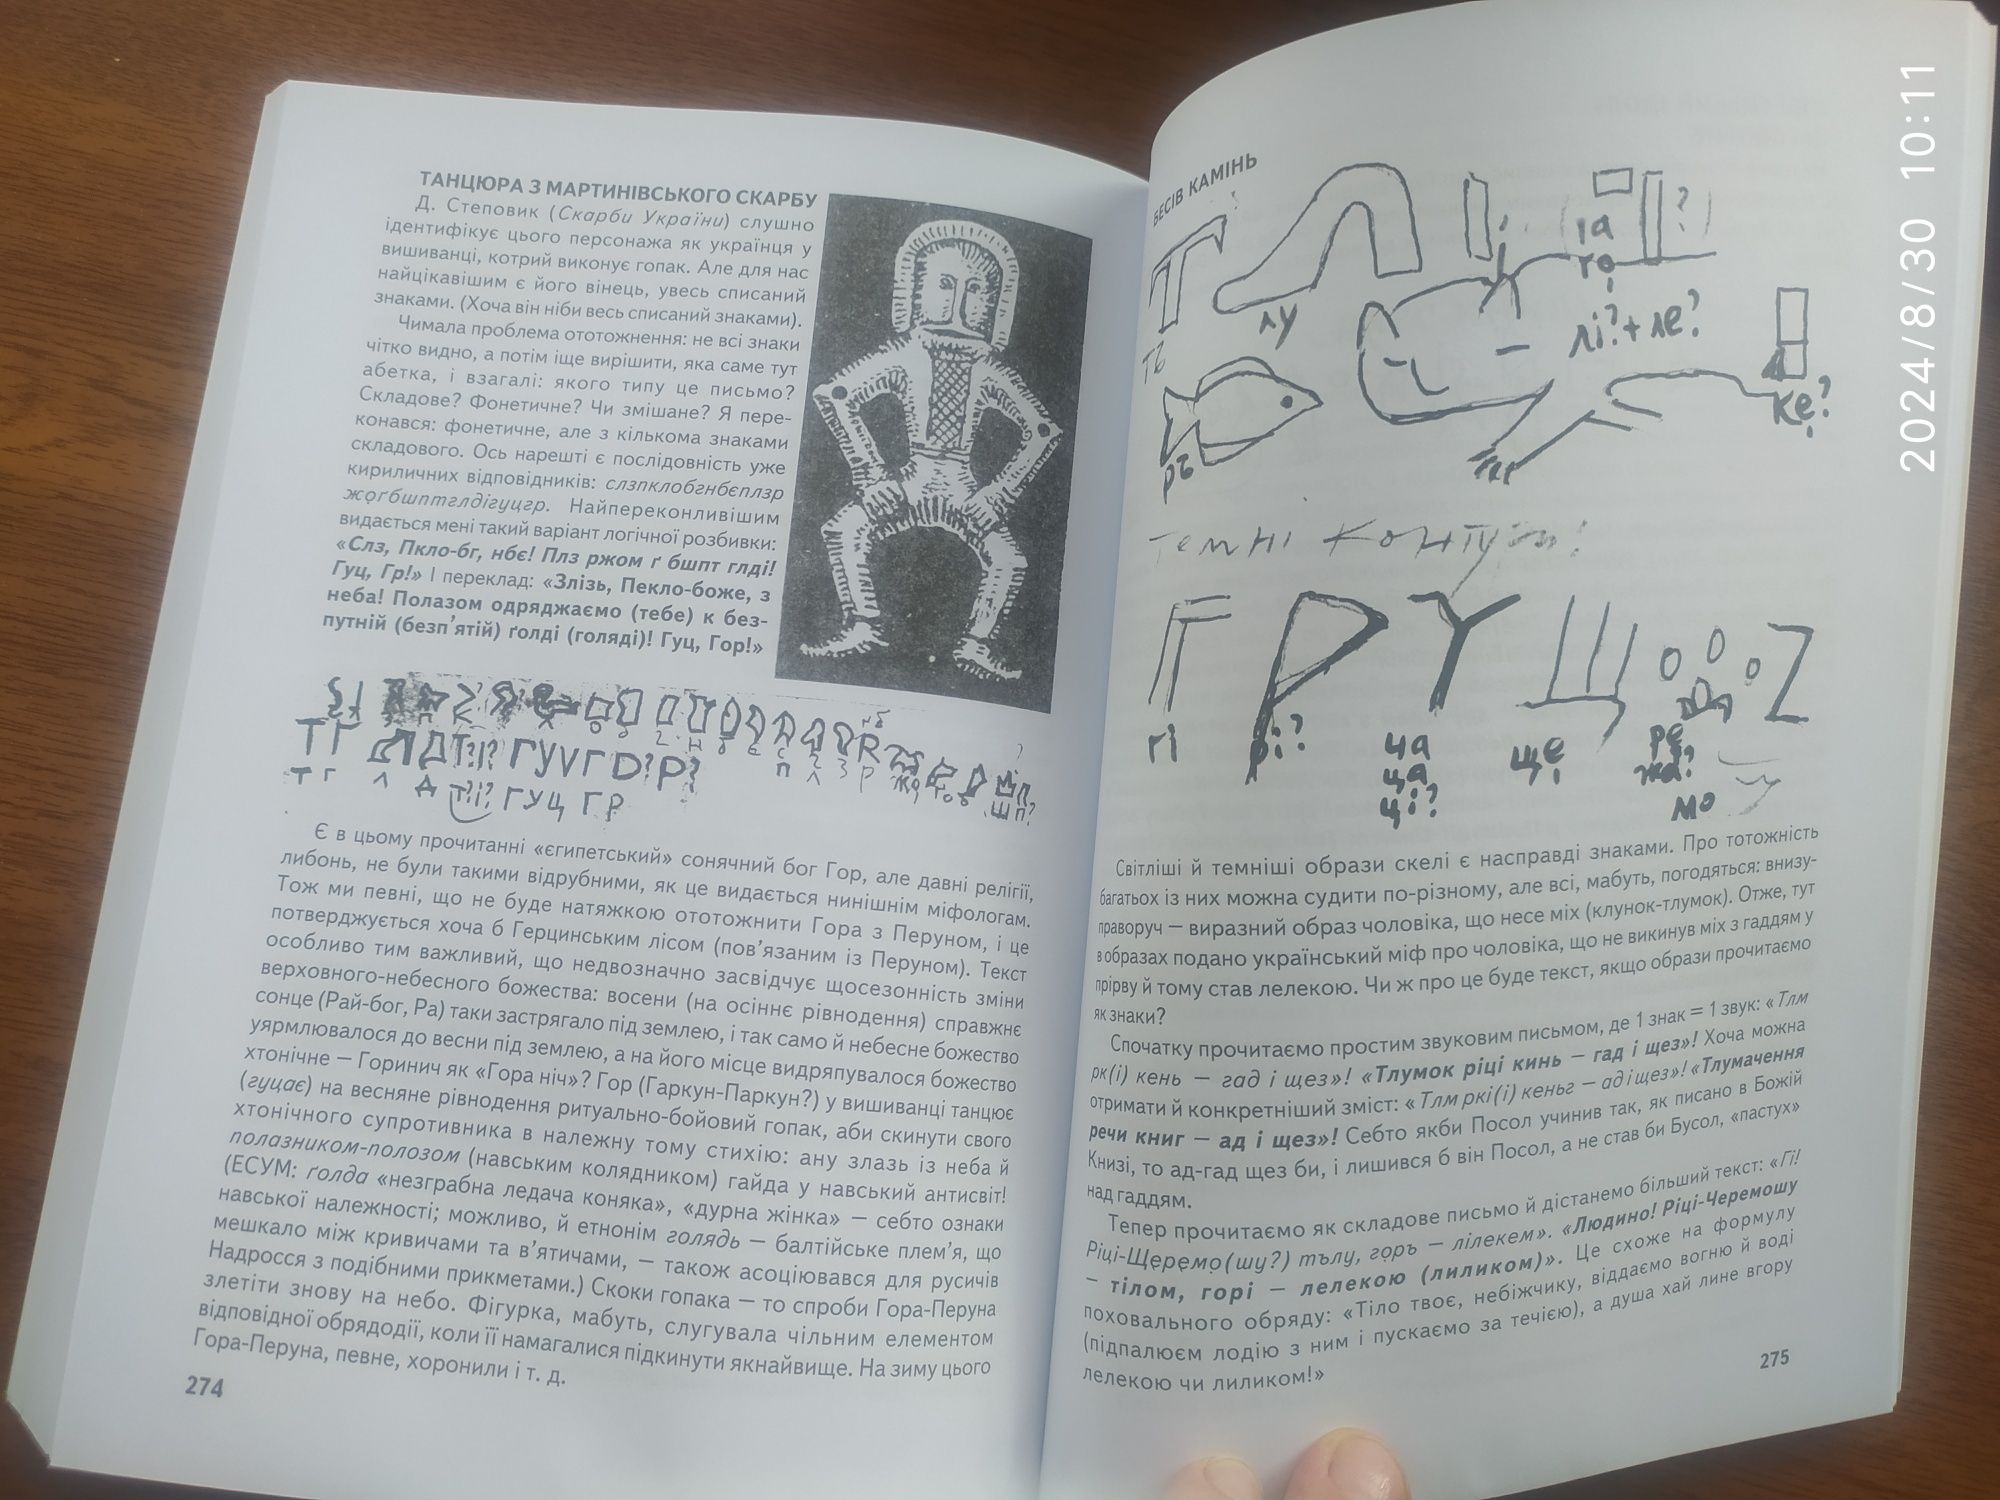 ТАНЦЮРА З МАРТИНІВСЬКОГО СКАРБУ
Д. Степовик (Скарби України) слушно
ідентифікує цього персонажа як українця у
вишиванці, котрий виконує гопак. Але для нас
найцікавішим є його вінець, увесь списаний
знаками. (Хоча він ніби весь списаний знаками).
Чимала проблема ототожнення: не всі знаки
чітко видно, а потім іще вирішити, яка саме тут
абетка, і взагалі: якого типу це письмо?
Складове? Фонетичне? Чи змішане? Я пере-
конався: фонетичне, але з кількома знаками
складового. Ось нарешті є послідовність уже
кириличних відповідників: слзпклобгнбєплзр
жọґбшптглдігуцгр. Найпереконливішим
видається мені такий варіант логічної розбивки:
«Слз, Пкло-бг, нбє! Плз ржом ґ бшпт глді!
Гуц, Гр!» І переклад: «Злізь, Пекло-боже, з
неба! Полазом одряджаємо (тебе) к без-
путній (безп’ятій) ґолді (голяді)! Гуц, Гор!»
Т Г
Т Г Л Д Т?І? ГУЦ ГР
Є в цьому прочитанні «єгипетський» сонячний бог Гор, але давні релігії,
либонь, не були такими відрубними, як це видається нинішнім міфологам.
Тож ми певні, що не буде натяжкою ототожнити Гора з Перуном, і це
потверджується хоча б Герцинським лісом (пов’язаним із Перуном). Текст
особливо тим важливий, що недвозначно засвідчує щосезонність зміни
верховного-небесного божества: восени (на осіннє рівнодення) справжнє
сонце (Рай-бог, Ра) таки застрягало під землею, і так само й небесне божество
уярмлювалося до весни під землею, а на його місце видряпувалося божество
хтонічне — Горинич як «Гора ніч»? Гор (Гаркун-Паркун?) у вишиванці танцює
(гуцає) на весняне рівнодення ритуально-бойовий гопак, аби скинути свого
хтонічного супротивника в належну тому стихію: ану злазь із неба й
полазником-полозом (навським колядником) гайда у навський антисвіт!
(ЕСУМ: ґолда «незграбна ледача коняка», «дурна жінка» — себто ознаки
навської належності; можливо, й етнонім голядь — балтійське плем’я, що
мешкало між кривичами та в’ятичами, — також асоціювався для русичів
Надросся з подібними прикметами.) Скоки гопака — то спроби Гора-Перуна
злетіти знову на небо. Фігурка, мабуть, слугувала чільним елементом
відповідної обрядодії, коли її намагалися підкинути якнайвище. На зиму цього
Гора-Перуна, певне, хоронили і т. д.
274
БЕСІВ КАМІНЬ
лу
га
го
тъ
лі?+ле?
ке?
ръ
темні контури:
гі
рі?
ча
ца
ці?
ще
ре
жа?
мо
Світліші й темніші образи скелі є насправді знаками. Про тотожність
багатьох із них можна судити по-різному, але всі, мабуть, погодяться: внизу-
праворуч — виразний образ чоловіка, що несе міх (клунок-тлумок). Отже, тут
в образах подано український міф про чоловіка, що не викинув міх з гаддям у
прірву й тому став лелекою. Чи ж про це буде текст, якщо образи прочитаємо
як знаки?
Спочатку прочитаємо простим звуковим письмом, де 1 знак = 1 звук: «Тлм
рк(і) кень — гад і щез»! «Тлумок ріці кинь — гад і щез»! Хоча можна
отримати й конкретніший зміст: «Тлм ркі(і) кеньг — ад і щез»! «Тлумачення
речи книг — ад і щез»! Себто якби Посол учинив так, як писано в Божій
Книзі, то ад-гад щез би, і лишився б він Посол, а не став би Бусол, «пастух»
над гаддям.
Тепер прочитаємо як складове письмо й дістанемо більший текст: «Гі!
Ріці-Щеремо(шу?) тълу, горъ — лілекем». «Людино! Ріці-Черемошу
— тілом, горі — лелекою (лиликом)». Це схоже на формулу
поховального обряду: «Тіло твоє, небіжчику, віддаємо вогню й воді
(підпалюєм лодію з ним і пускаємо за течією), а душа хай лине вгору
лелекою чи лиликом!»
275
2024/8/30 10:11